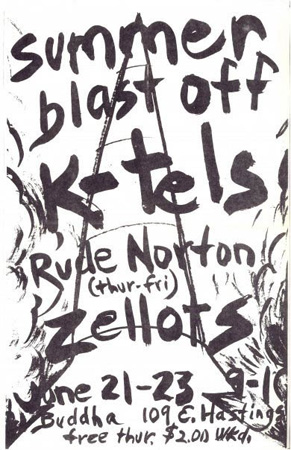 summer
blast off
K-tels
Rude Norton
(thur-fri)
Zellots
June 21-23 9-1
Buddha 109 E. Hastings
free thur. $2.00 Wkd.